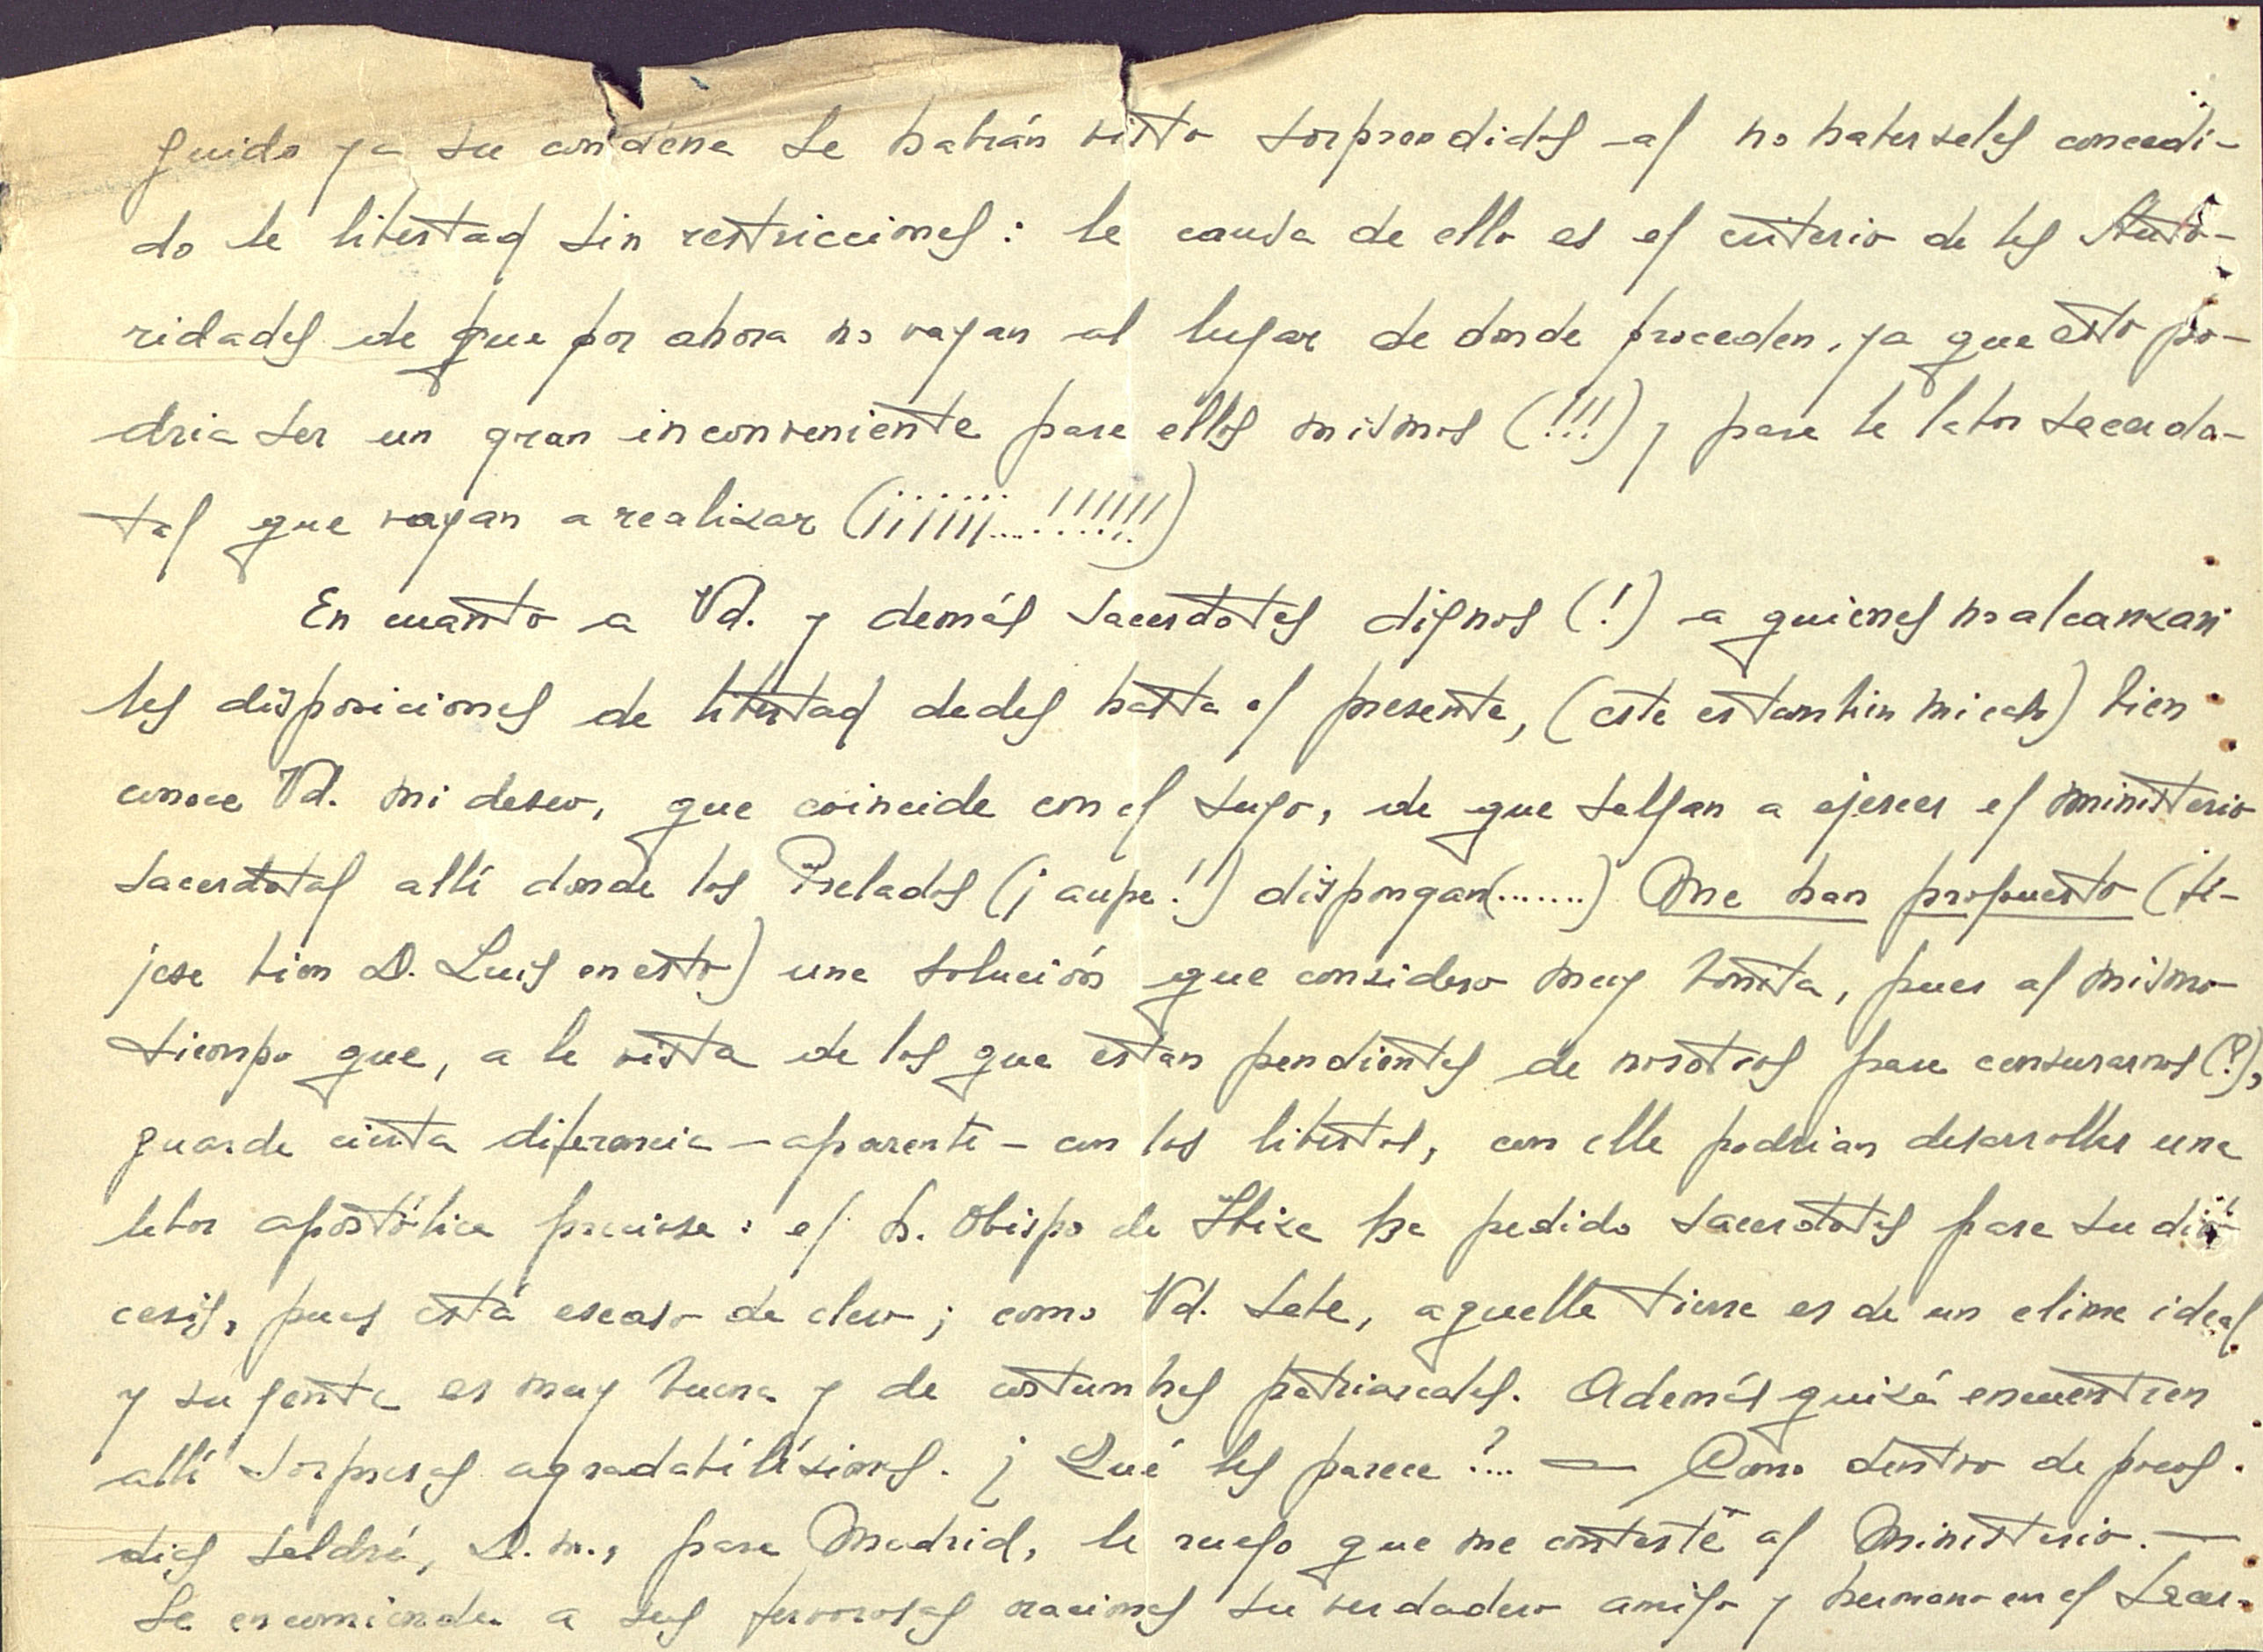 guido ya su condena se habrán visto sorprendidos -al no habérseles concedi-
do la libertad sin restricciones: la causa de ello es el criterio de las Auto-
ridades de que por ahora no vayan al lugar de donde proceden, ya que esto po-
dria ser un gran inconveniente para ellos mismos (!!!) y para la labor sacerdo-
tal que vayan a realizar (¡¡¡¡¡¡....!!!!!!)
En cuanto a Vd. y demás sacerdotes dignos (!) a quienes no alcanzan
las disposiciones de libertad dadas hasta el presente, (este es tambien mi caso) bien
conoce Vd. mi deseo, que coincide con el suyo, de que salgan a ejercer el ministerio
sacerdotal allí donde los Prelados (¡aupa!!) dispongan(.......) Me han propuesto (fí-
jese bien D. Luis en esto) una solución que considero muy bonita, pues al mismo
tiempo que, a la vista de los que estan pendientes de nosotros para censurarnos (?),
guarda cierta diferencia -aparente- con los libertos, con ella podrian desarrollar una
labor apostólica preciosa: el S. Obispo de Ibiza ha pedido sacerdotes para su dió
cesis, pues está escaso de clero; como Vd. sabe, aquella tierra es de un clima ideal
y su gente es muy buena y de costumbres patriarcales. Además quizá encuentren
allí sorpresas agradabilísimas. ¿Qué les parece?... — Como dentro de pocos
dias saldré, D.m., para Madrid, le ruego que me conteste al Ministerio. —
Se encomienda a sus fervorosas oraciones su verdadero amigo y hermano en el Sacer-